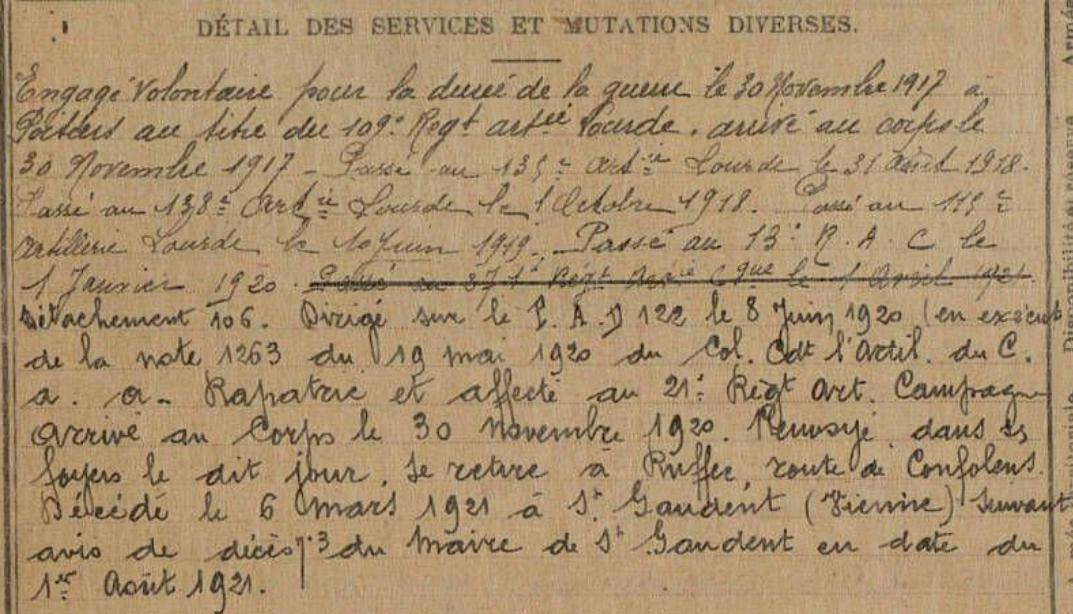 DÉTAIL DES SERVICES ET MUTATIONS DIVERSES.
Engagé Volontaire pour la durée de la guerre le 30 Novembre 1917 à
Poitiers au titre du 109e Regt artie Lourde. arrivé au corps le
30 Novembre 1917 - Passé au 135e Artie Lourde le 31 Août 1918.
Passé au 138e Artie Lourde le 1 Octobre 1918. Passé au 115e
Artillerie Lourde le 10 Juin 1919. Passé au 13e R. A. C le
1 Janvier 1920. Passé au 371e Regt Artie Cque le 1 Avril 1921.
Détachement 106. Dirigé sur le P. A. D 122 le 8 Juin 1920 (en exécut
de la note 1263 du 19 mai 1920 du Col. Cdt l'Artil. du C.
a. o. Rapatrié et affecté au 21e Régt Art. Campagne
Arrivé au Corps le 30 novembre 1920. Renvoyé dans ses
foyers le dit jour. Se retire à Ruffec, route de Confolens.
Décédé le 6 mars 1921 à St Gaudent (Vienne) suivant
avis de décès 73 du Maire de St Gaudent en date du
1er Août 1921.